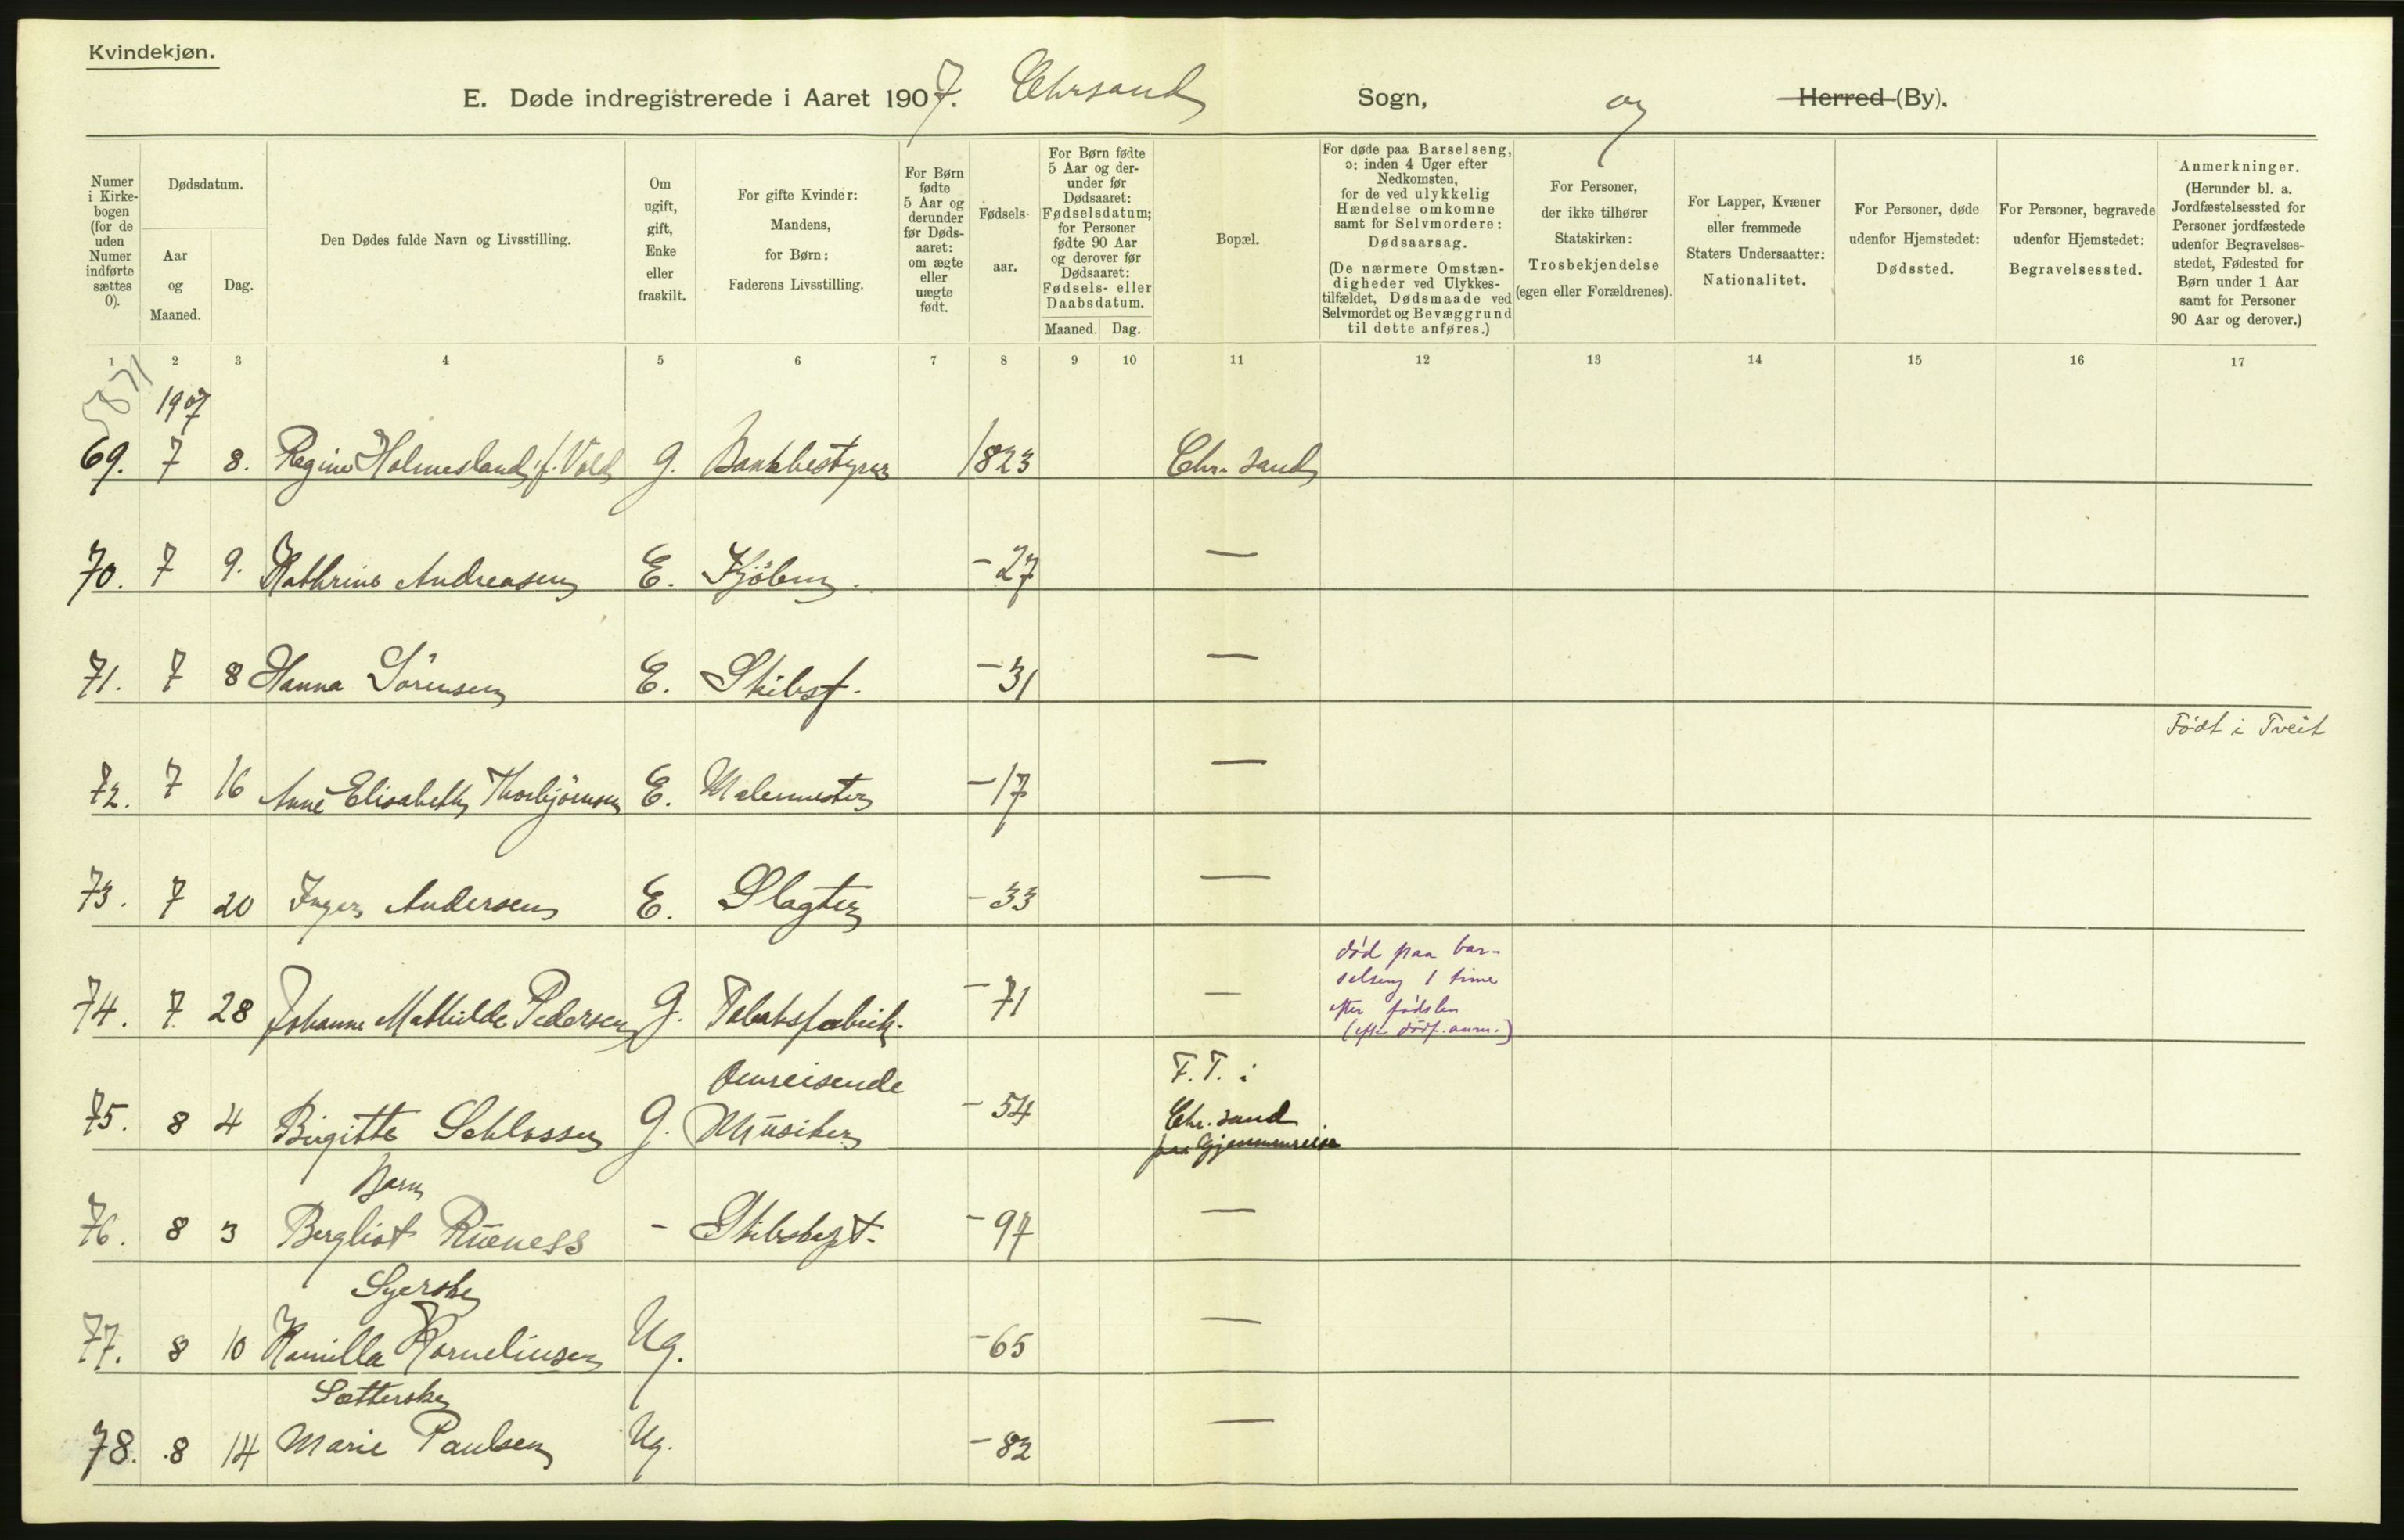 Kvindekjøn.
E. Døde indregistrerede i Aaret 1907. Chrsand Sogn, og Herred (By).
Numer i Kirke-bogen (for de uden Numer indførte sættes 0).
Dødsdatum.
Aar og Maaned.
Dag.
Den Dødes fulde Navn og Livsstilling.
Om ugift, gift, Enke eller fraskilt.
For gifte Kvinder: Mandens, for Børn: Faderens Livsstilling.
For Børn fødte 5 Aar og derunder før Døds-aaret: om ægte eller uægte født.
Fødsels-aar.
For Børn fødte 5 Aar og der-under før Dødsaaret: Fødselsdatum; for Personer fødte 90 Aar og derover før Dødsaaret: Fødsels- eller Daabsdatum.
Maaned. Dag.
Bopæl.
For døde paa Barselseng, ɔ: inden 4 Uger efter Nedkomsten, for de ved ulykkelig Hændelse omkomne samt for Selvmordere: Dødsaarsag.
(De nærmere Omstæn-digheder ved Ulykkes-tilfældet, Dødsmaade ved Selvmordet og Bevæggrund til dette anføres.)
For Personer, der ikke tilhører Statskirken: Trosbekjendelse (egen eller Forældrenes).
For Lapper, Kvæner eller fremmede Staters Undersaatter: Nationalitet.
For Personer, døde udenfor Hjemstedet: Dødssted.
For Personer, begravede udenfor Hjemstedet: Begravelsessted.
Anmerkninger.
(Herunder bl. a. Jordfæstelsessted for Personer jordfæstede udenfor Begravelses-stedet, Fødested for Børn under 1 Aar samt for Personer 90 Aar og derover.)
1 2 3 4 5 6 7 8 9 10 11 12 13 14 15 16 17
1907
69. 7 8. Regine Holmesland, f. Vold G. Bankbestyrer 1823 Chr. sand
70. 7 9. Kathrine Andreasen E. Kjöbm. -27 —
71. 7 8 Hanna Sörensen E. Skibsf. -31 —
Født i Tveit
72. 7 16 Anne Elisabeth Thorbjörnsen E. Malermester -17 —
73. 7 20 Inger Andersen E. Slagter -33 —
74. 7 28 Johanne Mathilde Pedersen G. Tobaksfabrik. -71 —
død paa bar-
selseng 1 time
efter fødslen
(efter dödf. anm.)
75. 8 4 Birgitte Schlosser G. Omreisende
Musiker -54 F. T. i
Chr. sand
paa Gjennemreise
Barn
76. 8 3 Bergliot Rueness - Skibskapt. -97 —
Syerske
77. 8 10 Kamilla Korneliusen Ug. -65 —
Sætterske
78. 8 14 Marie Paulsen Ug. -82 —